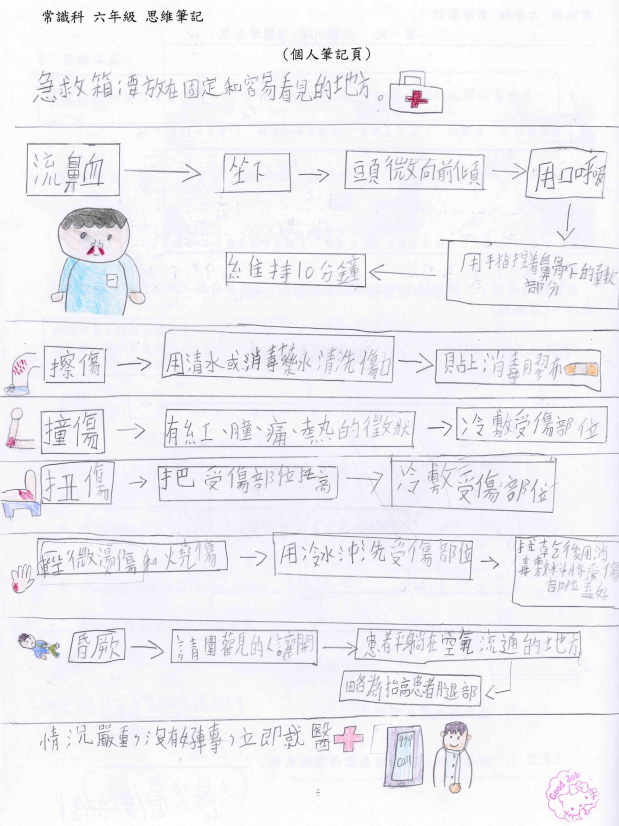 常識科 六年級 思維筆記
(個人筆記頁)
急救箱須放在固定和容易看見的地方。
流鼻血 → 坐下 → 頭微向前傾 → 用口呼吸
用手指捏着鼻骨下的柔軟部分
維持10分鐘
擦傷 → 用清水或消毒藥水清洗傷口 → 貼上消毒膠布
撞傷 → 有紅、腫、痛、熱的徵狀 → 冷敷受傷部位
扭傷 → 把受傷部位抬高 → 冷敷受傷部位
輕微燙傷和燒傷 → 用冷水沖洗受傷部位 → 抹乾後用消毒敷料將受傷部位蓋好
昏厥 → 請圍觀的人讓開 → 患者平躺在空氣流通的地方
略為抬高患者腿部
情況嚴重,沒有好轉,立即就醫
999
Call
Good Job